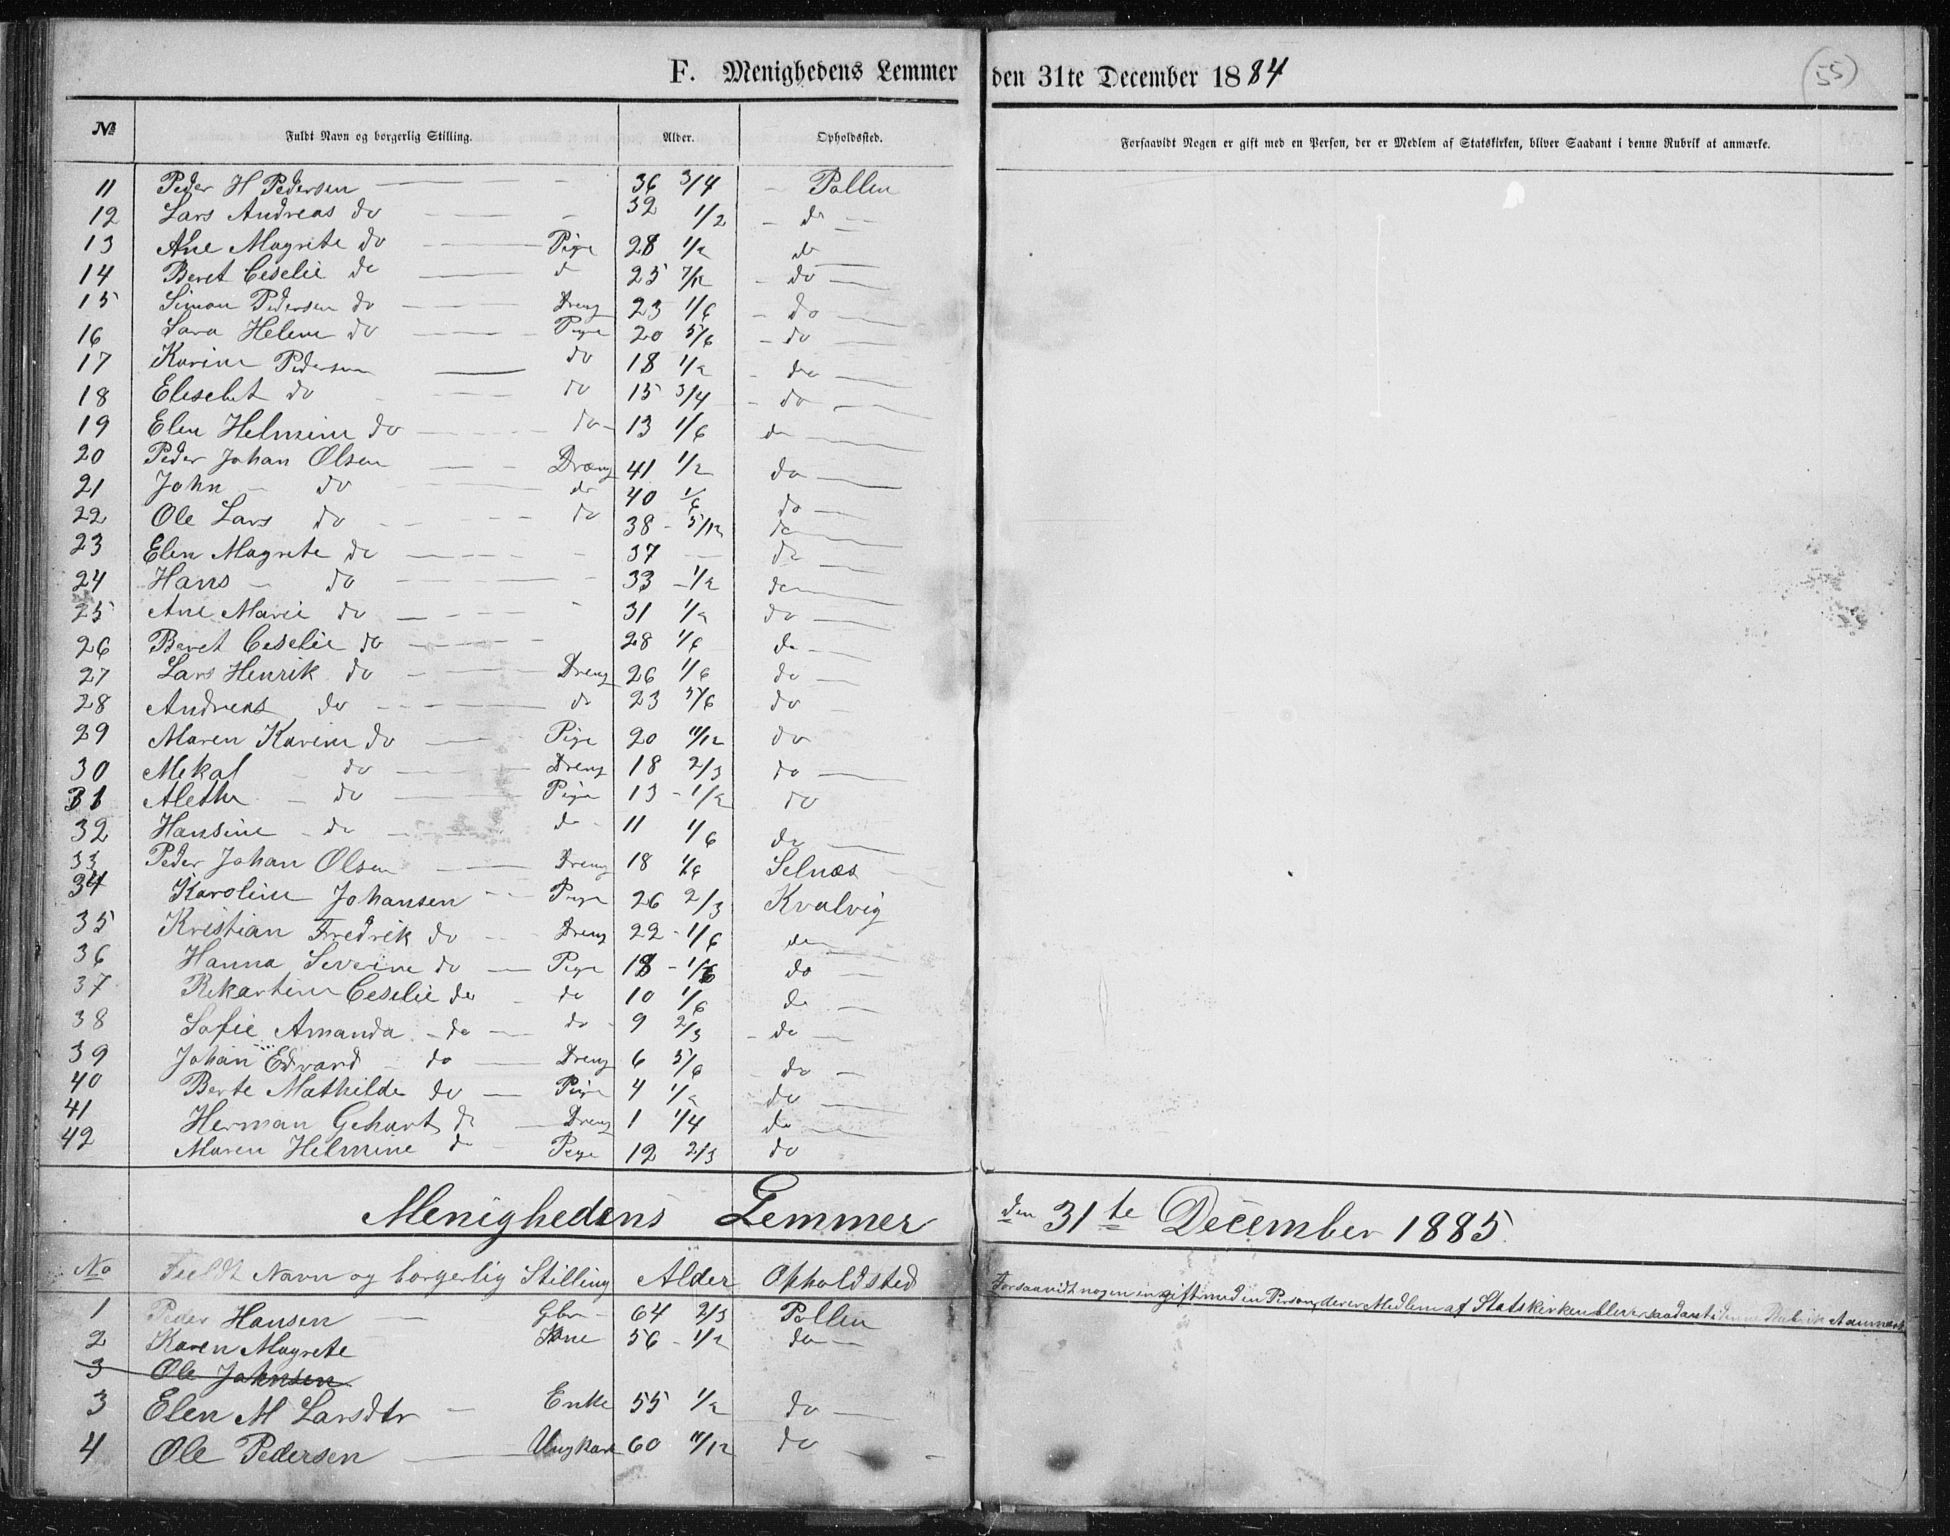 F. Menighedens Lemmer den 31te December 1884 (55)
№ Fuldt Navn og borgerlig Stilling. Alder. Opholdssted. Forsaavidt Nogen er gift med en Person, der er Medlem af Statskirken, bliver Saadant i denne Rubrik at anmærke.
11 Peder H Pedersen 36 3/4 Pollen
12 Lars Andreas do 32 1/2 do
13 Ane Magrete do Pige 28 1/2 do
14 Beret Ceselie do d 25 7/12 do
15 Simon Pedersen do Dreng 23 1/6 do
16 Sara Helene do Pige 20 5/6 do
17 Karine Pedersen do 18 1/2 do
18 Elisebet do do 15 3/4 do
19 Elen Helmine do do 13 1/6 do
20 Peder Johan Olsen Dræng 41 1/2 do
21 John do do 40 1/6 do
22 Ole Lars do do 38 5/12 do
23 Elen Magrete do 37 do
24 Hans do 33 1/2 do
25 Ane Marie do 31 1/2 do
26 Beret Ceselie do 28 1/6 do
27 Lars Henrik do Dreng 26 1/6 do
28 Andreas do do 23 5/6 do
29 Maren Karine do Pige 20 11/12 do
30 Mekal do Dreng 18 2/3 do
31 Alethe do Pige 13 1/2 do
32 Hansine do do 11 1/6 do
33 Peder Johan Olsen Dreng 18 1/6 Selnæs
34 Karoline Johansen Pige 26 2/3 Kvalvig
35 Kristian Fredrik do Dreng 22 1/6 do
36 Hanna Severine do Pige 18 1/6 do
37 Rikartine Ceselie do do 10 1/6 do
38 Sofie Amanda do do 9 2/3 do
39 Johan Edvard do Dreng 6 5/6 do
40 Berte Mathilde do Pige 4 1/2 do
41 Herman Gehart do Dreng 1 1/4 do
42 Maren Helmine do Pege 12 2/3 do
Menighedens Lemmer den 31te December 1885
No Fuldt Navn og borgerlig Stilling Alder Opholdsted Forsaavidt nogen er gift med en Person, der er Medlem af Statskirken bliver saadant i denne Rubrik at anmærk
1 Peder Hansen Gbr 64 2/3 Pollen
2 Karen Magrete Kone 56 1/2 do
3 Ole Johnsen
3 Elen M Larsdtr Enke 55 1/2 do
4 Ole Pedersen Ungkarl 60 11/12 do